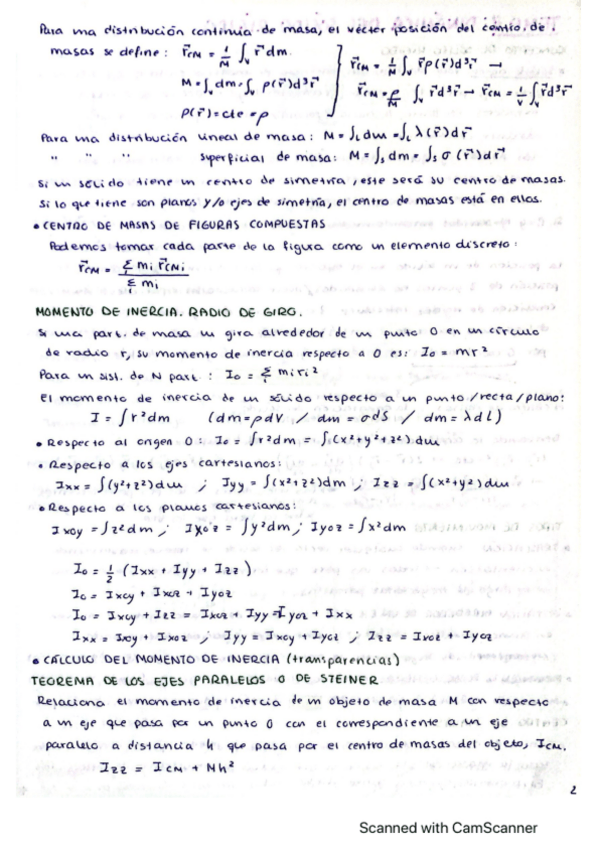 Para una distribución continua de masa, el vector posición del centro de
masas se define: r⃗CM = 1/M ∫v r⃗ dm.
M = ∫v dm = ∫v ρ(r⃗)d³r⃗
ρ(r⃗) = cte = ρ
r⃗CM = 1/M ∫v r⃗ρ(r⃗)d³r⃗ →
r⃗CM = ρ/M ∫v r⃗d³r⃗ → r⃗CM = 1/V ∫v r⃗d³r⃗
Para una distribución lineal de masa: M = ∫L dm = ∫L λ(r⃗)dr⃗
" " " superficial de masa: M = ∫s dm = ∫s σ(r⃗)dr⃗
Si un sólido tiene un centro de simetría, este será su centro de masas.
Si lo que tiene son planos y/o ejes de simetría, el centro de masas está en ellos.
• CENTRO DE MASAS DE FIGURAS COMPUESTAS
Podemos tomar cada parte de la figura como un elemento discreto:
r⃗CM = Σi mi r⃗CMi / Σi mi
MOMENTO DE INERCIA. RADIO DE GIRO.
Si una part. de masa m gira alrededor de un punto O en un círculo
de radio r, su momento de inercia respecto a O es: Io = mr²
Para un sist. de N part.: Io = Σi miri²
El momento de inercia de un sólido respecto a un punto/recta/plano:
I = ∫r²dm (dm = ρdV / dm = σdS / dm = λdl)
• Respecto al origen O: Io = ∫r²dm = ∫(x²+y²+z²)dm
• Respecto a los ejes cartesianos:
Ixx = ∫(y²+z²)dm ; Iyy = ∫(x²+z²)dm ; Izz = ∫(x²+y²)dm
• Respecto a los planos cartesianos:
Ixoy = ∫z²dm ; Ixoz = ∫y²dm ; Iyoz = ∫x²dm
Io = 1/2 (Ixx + Iyy + Izz)
Io = Ixoy + Ixoz + Iyoz
Io = Ixoy + Izz = Ixoz + Iyy = Iyoz + Ixx
Ixx = Ixoy + Ixoz ; Iyy = Ixoy + Iyoz ; Izz = Ixoz + Iyoz
• CÁLCULO DEL MOMENTO DE INERCIA (transparencias)
TEOREMA DE LOS EJES PARALELOS O DE STEINER
Relaciona el momento de inercia de un objeto de masa M con respecto
a un eje que pasa por un punto O con el correspondiente a un eje
paralelo a distancia h que pasa por el centro de masas del objeto, ICM.
Izz = ICM + Mh²
2
Scanned with CamScanner